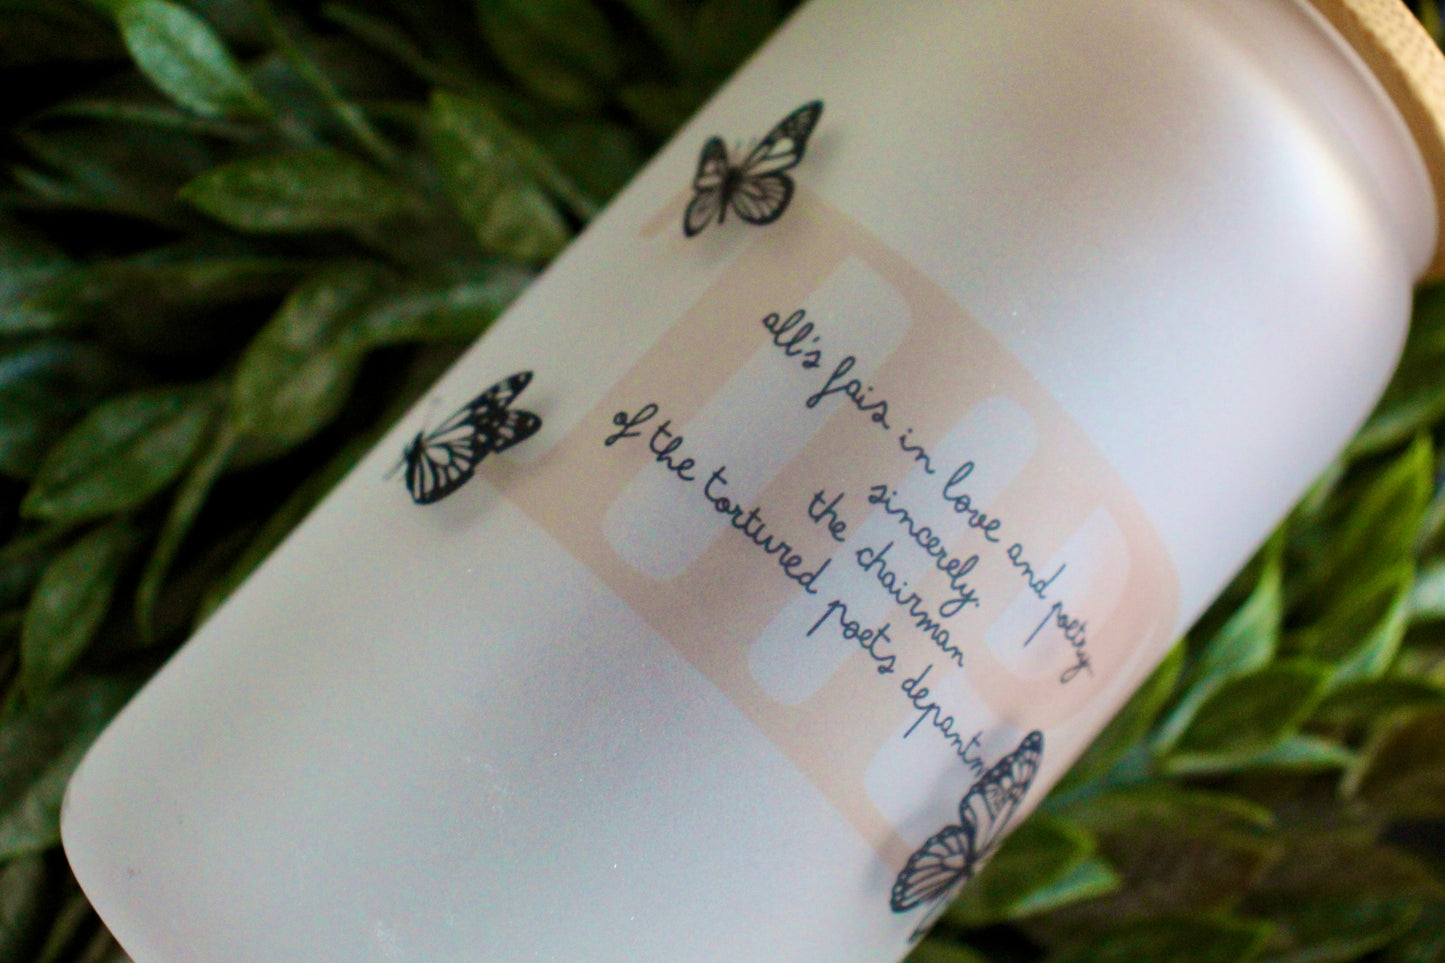 all's fair in love and poetry
sincerely.
the chairman
of the tortured poets departm